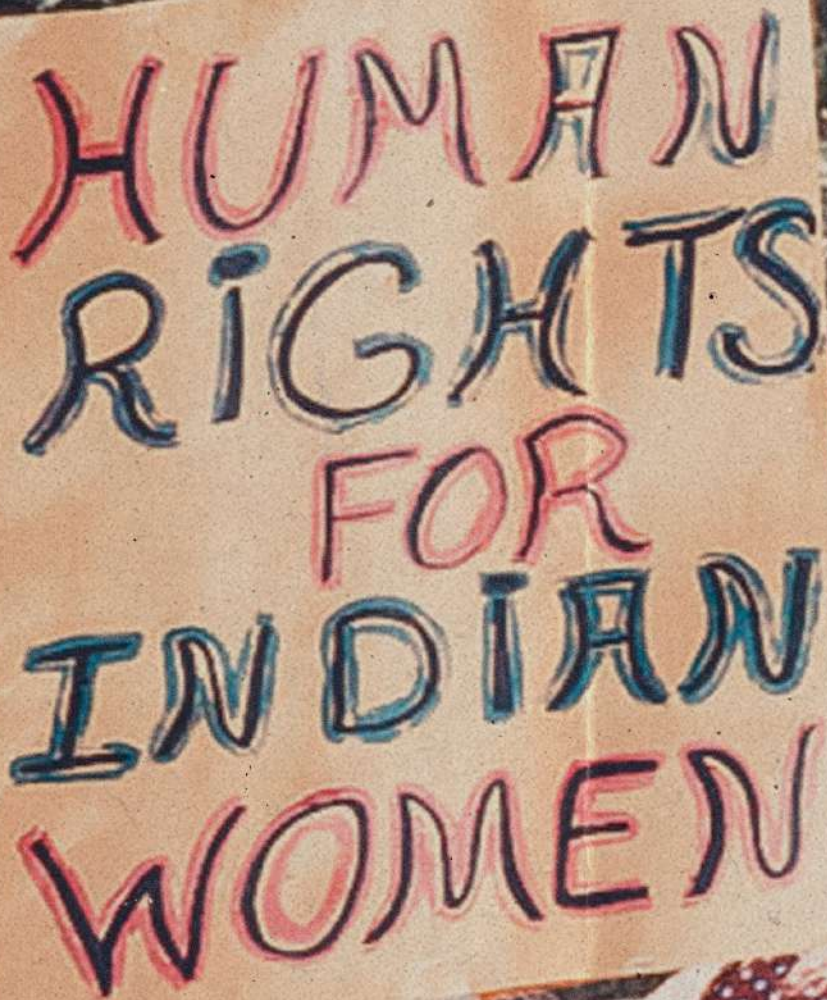 HUMAN
RiGHTS
FOR
INDIAN
WOMEN